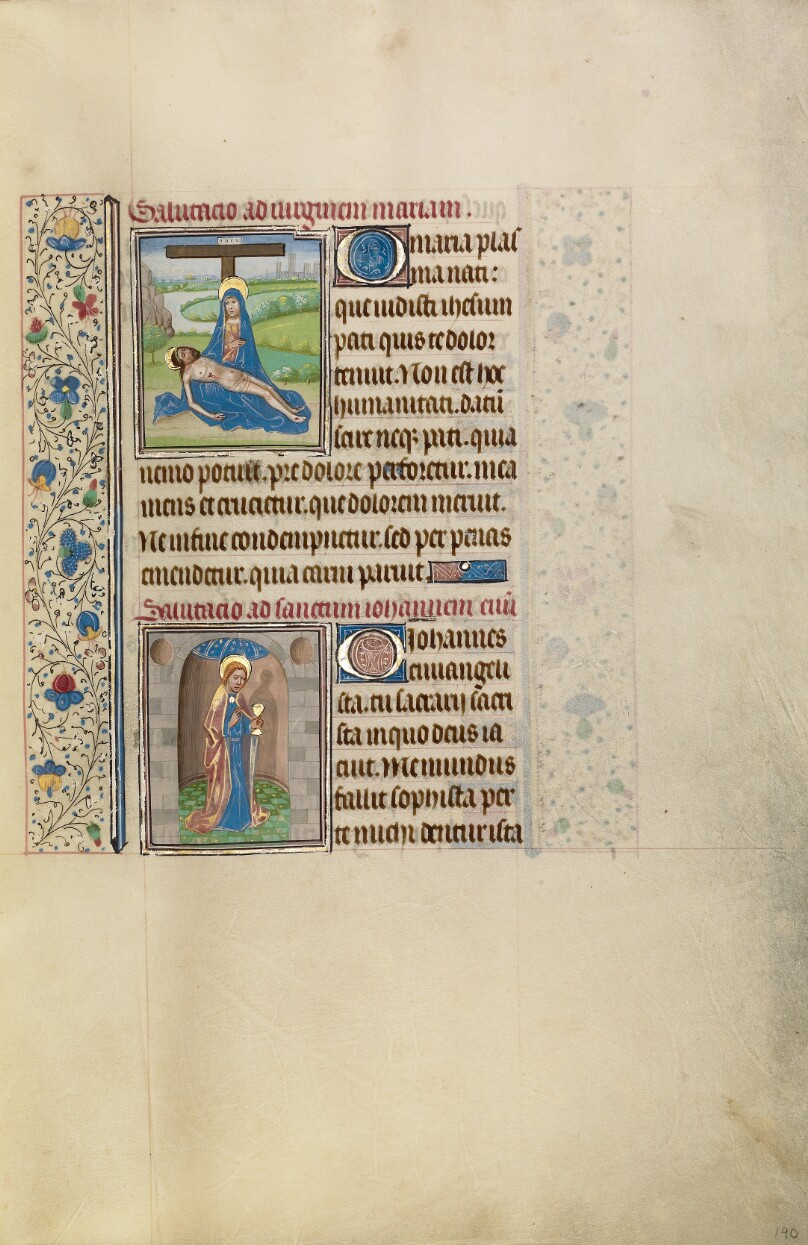 Salutacio ad uirginem mariam.
O maria plas
ma nati:
que uidisti ihesum
pati quis te dolor
tenuit. Non est hoc
humanitati. datū
scire neq; pati. quia
nemo potuit. pre dolore perforetur. mea
mens et crucietur. que dolorem meruit.
Ne in fine condempnetur. sed per penas
emendetur. quia carni paruit.
Salutacio ad sanctum iohannem euū
O Iohannes
euuangeli
sta. tu sacrarij sacri
sta in quo deus ia
cuit. Me mundus
fallit sophista per
te michi dentur ista
190